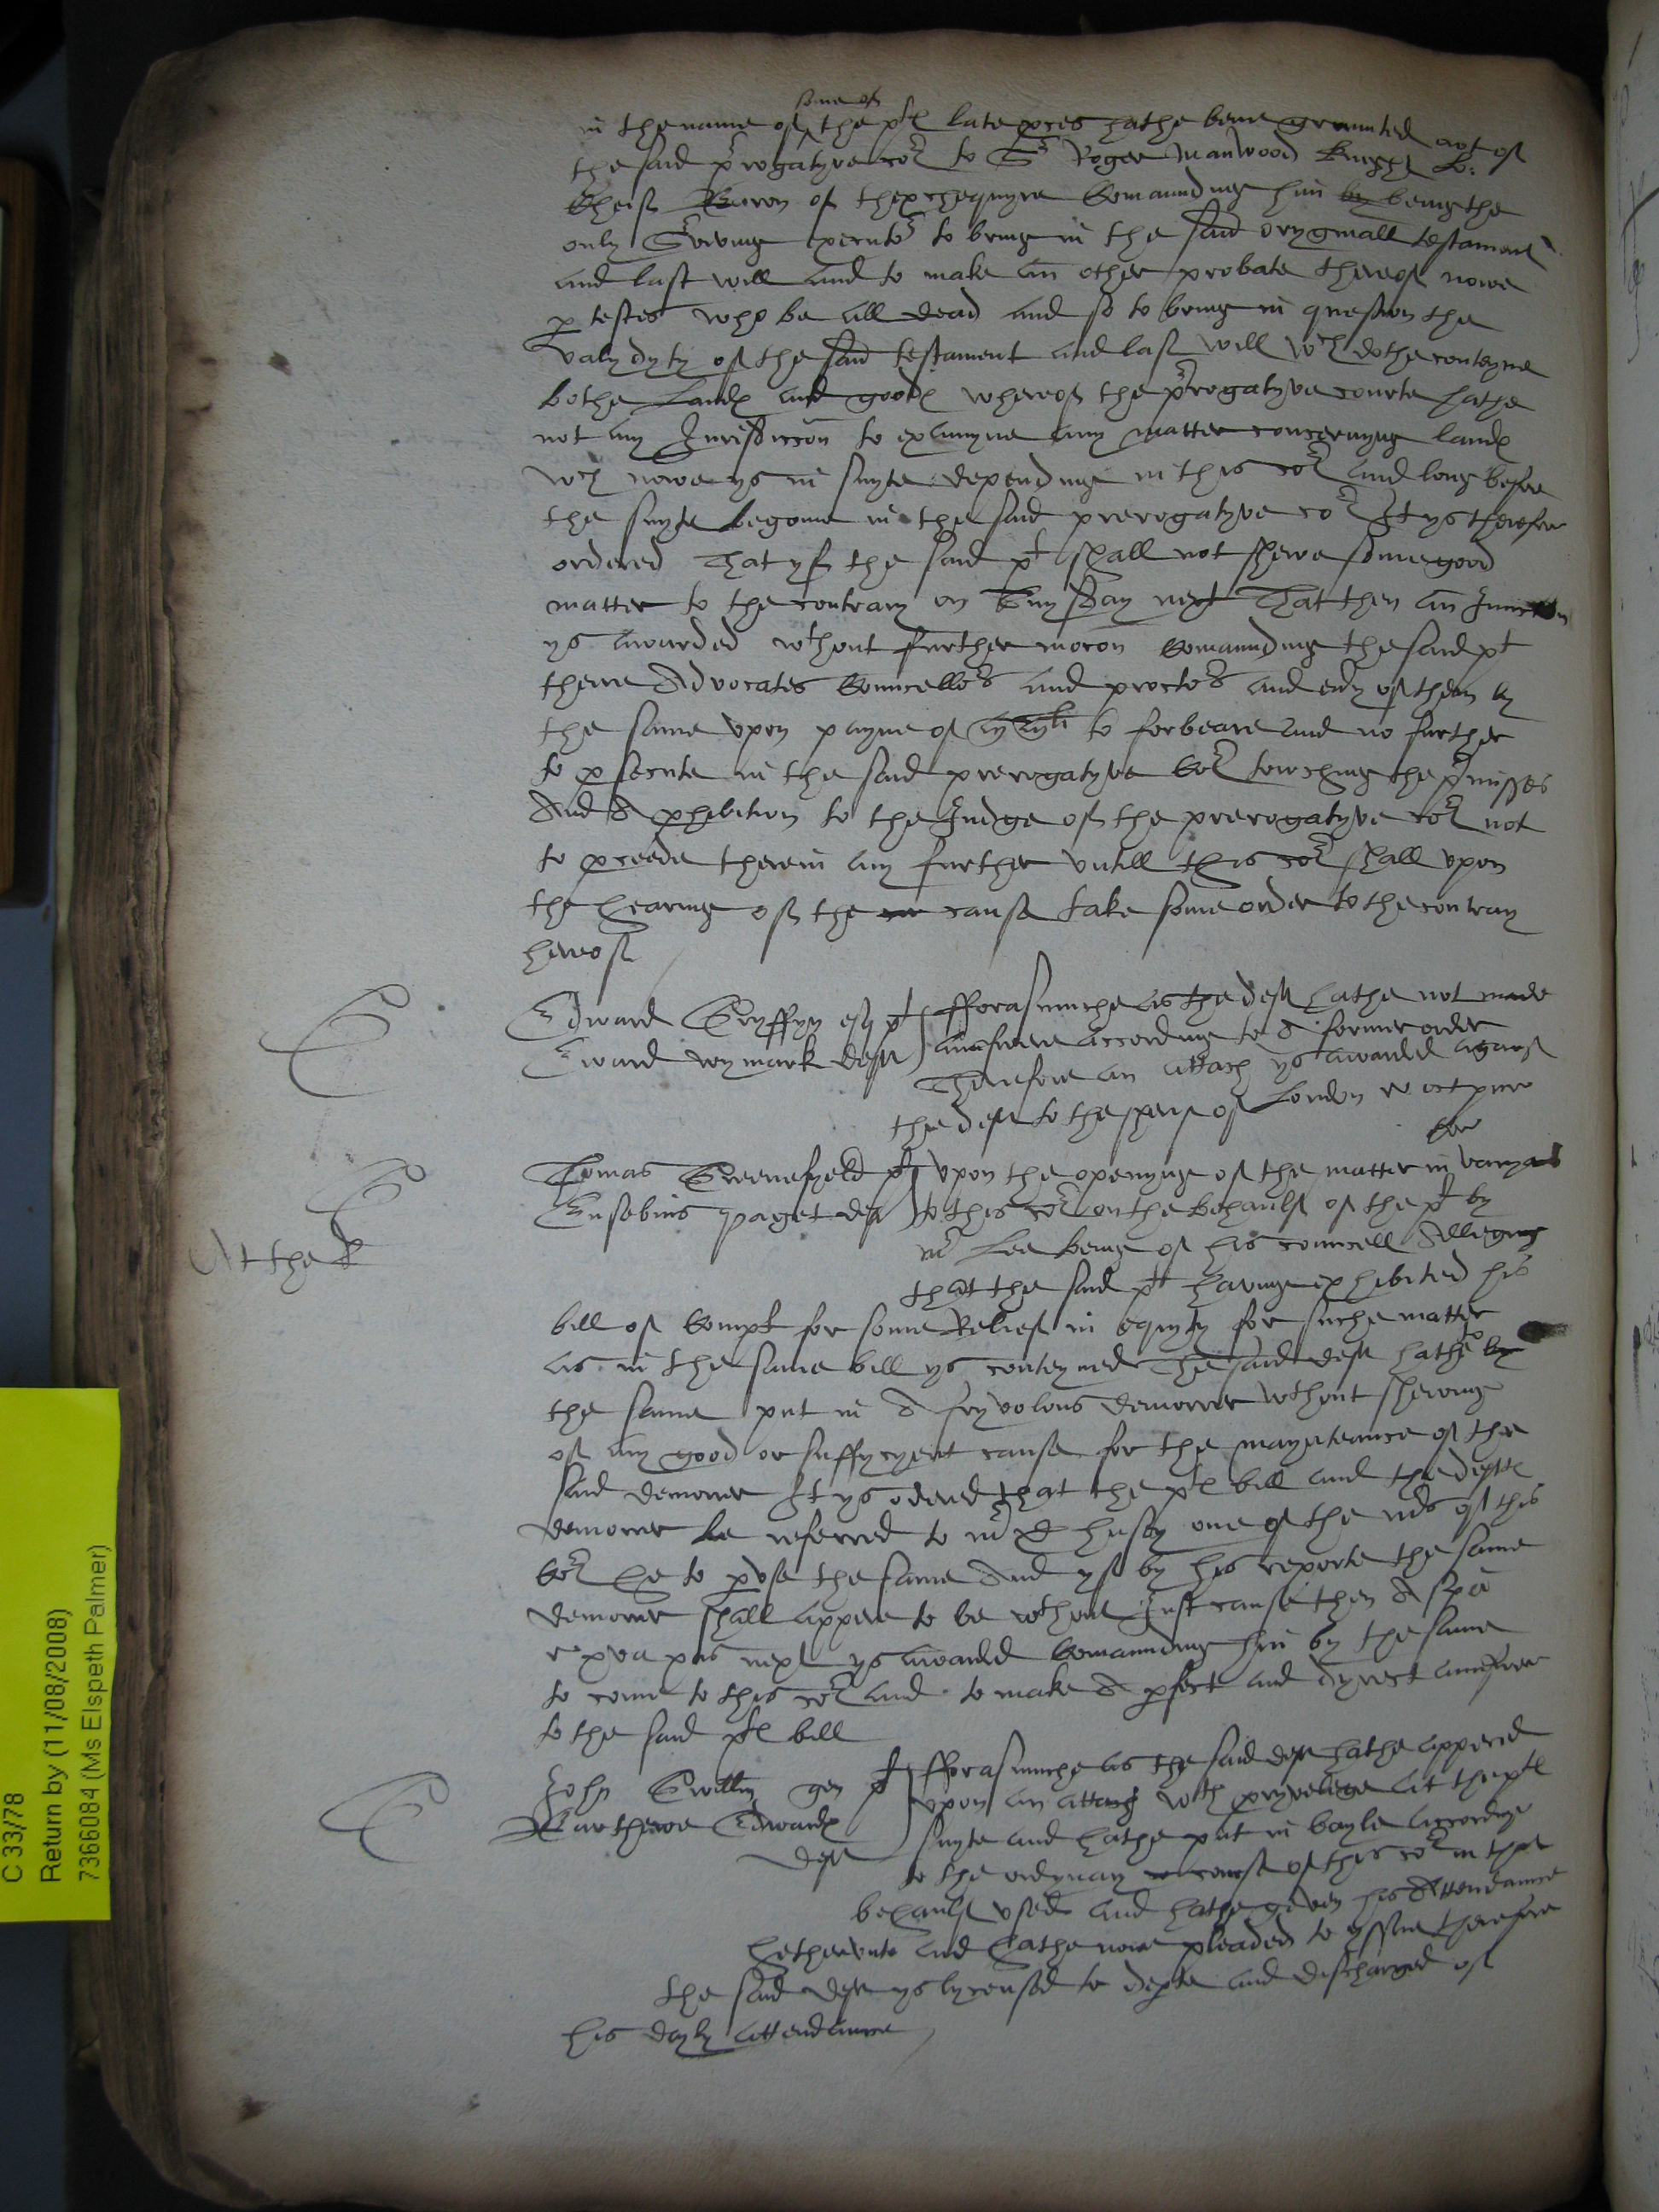 some of
in the name of the pts late proces hathe bene graunted out of
the said progatyve cort to Sr Roger Manwood knight L:
Cheif Baron of thexchequyre Comaunding him by being the
only Surviving executor to bring in the said oryginall testament
and last will and to make an other probate thereof nowe
p testes who be all dead and so to bring in question the
valydyty of the said testament and last will wch dothe conteyne
bothe Lands and goods whereof the progatyve courte hathe
not any Jurisdiccon to examyne any matter concernyng lands
wch nowe ys in suyte depending in this cort and long before
the suyte begonne in the said prerogatyve cort It ys therefore
ordered That yf the said pt shall not shewe some good
matter to the contrary on next That then an Iniunccon
ys awarded wthout further mocon Comaunding the said pt
theire Advocates Councellors and proctors and evry of them by
the same upon payne of to forbeare and no further
to psecute in the said prerogatyve Cort towching the pmisses
And A phibition to the Judge of the prerogatyve cort not
to pceede therein any further untill this cort shall upon
the hearing of the cause take some order to the contrary
hereof
Edward Gryffyn esq pt fforasmuche as the deft hathe not made
Edward wymark deft aunswere according to A former order
Therefore an attach ys awarded against
the deft to the sherif of London
Thomas Greenefyeld pt upon the openyng of the matter in varyaes
Eusebius paget def to this cort on the behaulf of the pt by
At the R
mr Lee being of his councell Alleging
that the said pt having exhibited his
bill of Complt for some Relief in equyty for suche matter
as in the same bill ys conteyned The said deft hathe to by
the same put in A fryvolous demorrer wthout shewing
of any good or suffycyent cause for the mayntenance of the
said demorrer It ys ordered that the pts bill and the defts
demorrer be referred to mr D husy one of the mrs of this
Cort he to pvse the same And yf by his reporte the same
demorrer shall appere to be wthout Just cause then A spa
r xva pas next ys awarded Comaunding him by the same
to come to this cort and to make A pfect and dyrect aunswer
to the said pts bill
John Gwillin gen pt fforasmuche as the said deft hathe appered
Edwards upon an attach wth pryvelege at the pts
deft suyte and hathe put in bayle according
to the ordynary course of this cort in that
behaulf used and hathe geven his Attendaunce
hethervnto and hathe nowe pleaded to yssue therefore
the said deft ys lycensed to depte and discharged of
his dayly attendaunce
C 33/78
Return by (11/08/2008)
7366084 (Ms Elspeth Palmer)